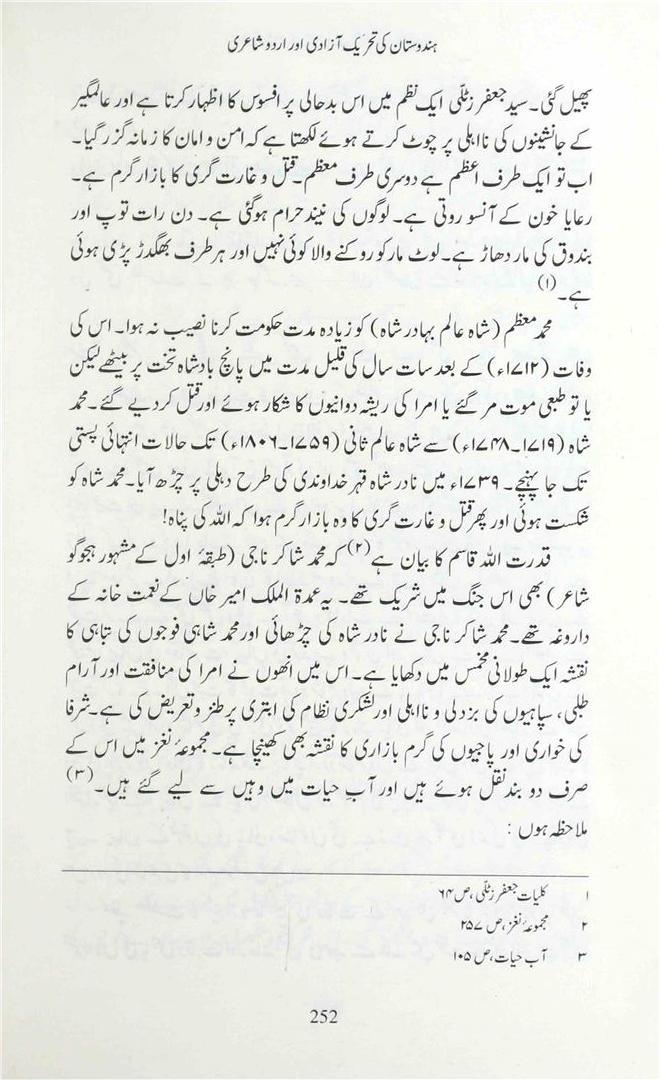 ہندوستان کی تحریک آزادی اور اردو شاعری
پھیل گئی۔ سید جعفر زٹلّی ایک نظم میں اس بدحالی پر افسوس کا اظہار کرتا ہے اور عالمگیر
کے جانشینوں کی نااہلی پر چوٹ کرتے ہوئے لکھتا ہے کہ امن و امان کا زمانہ گزر گیا۔
اب تو ایک طرف اعظم ہے دوسری طرف معظم۔ قتل و غارت گری کا بازار گرم ہے۔
رعایا خون کے آنسو روتی ہے۔ لوگوں کی نیند حرام ہوگئی ہے۔ دن رات توپ اور
بندوق کی مار دھاڑ ہے۔ لوٹ مار کو روکنے والا کوئی نہیں اور ہر طرف بھگدڑ پڑی ہوئی
ہے۔(۱)
محمد معظم (شاہ عالم بہادر شاہ) کو زیادہ مدت حکومت کرنا نصیب نہ ہوا۔ اس کی
وفات (۱۷۱۲ء) کے بعد سات سال کی قلیل مدت میں پانچ بادشاہ تخت پر بیٹھے لیکن
یا تو طبعی موت مر گئے یا امرا کی ریشہ دوانیوں کا شکار ہوئے اور قتل کردیے گئے۔ محمد
شاہ (۱۷۱۹۔۱۷۴۸ء) سے شاہ عالم ثانی (۱۷۵۹۔۱۸۰۶ء) تک حالات انتہائی پستی
تک جا پہنچے۔ ۱۷۳۹ء میں نادر شاہ قہر خداوندی کی طرح دہلی پر چڑھ آیا۔ محمد شاہ کو
شکست ہوئی اور پھر قتل و غارت گری کا وہ بازار گرم ہوا کہ اللہ کی پناہ!
قدرت اللہ قاسم کا بیان ہے(۲) کہ محمد شاکر ناجی (طبقۂ اول کے مشہور ہجوگو
شاعر) بھی اس جنگ میں شریک تھے۔ یہ عمدۃ الملک امیر خاں کے نعمت خانہ کے
داروغہ تھے۔ محمد شاکر ناجی نے نادر شاہ کی چڑھائی اور محمد شاہی فوجوں کی تباہی کا
نقشہ ایک طولانی مخمس میں دکھایا ہے۔ اس میں انھوں نے امرا کی منافقت اور آرام
طلبی، سپاہیوں کی بزدلی و نااہلی اور لشکری نظام کی ابتری پر طنز و تعریض کی ہے۔ شرفا
کی خواری اور پاجیوں کی گرم بازاری کا نقشہ بھی کھینچا ہے۔ مجموعۂ نغز میں اس کے
صرف دو بند نقل ہوئے ہیں اور آبِ حیات میں وہیں سے لیے گئے ہیں۔(۳)
ملاحظہ ہوں :
۱ کلیات جعفر زٹلّی، ص ۶۴
۲ مجموعۂ نغز، ص ۲۵۷
۳ آب حیات، ص ۱۰۵
252